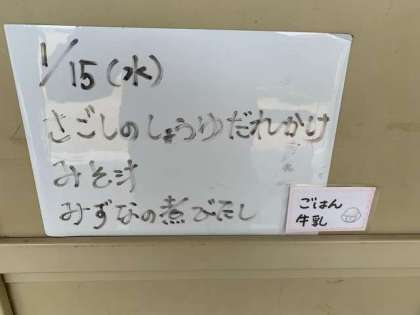 1/15(水)
さごしのしょうゆだれかけ
みそ汁
みずなの煮びたし
ごはん
牛乳